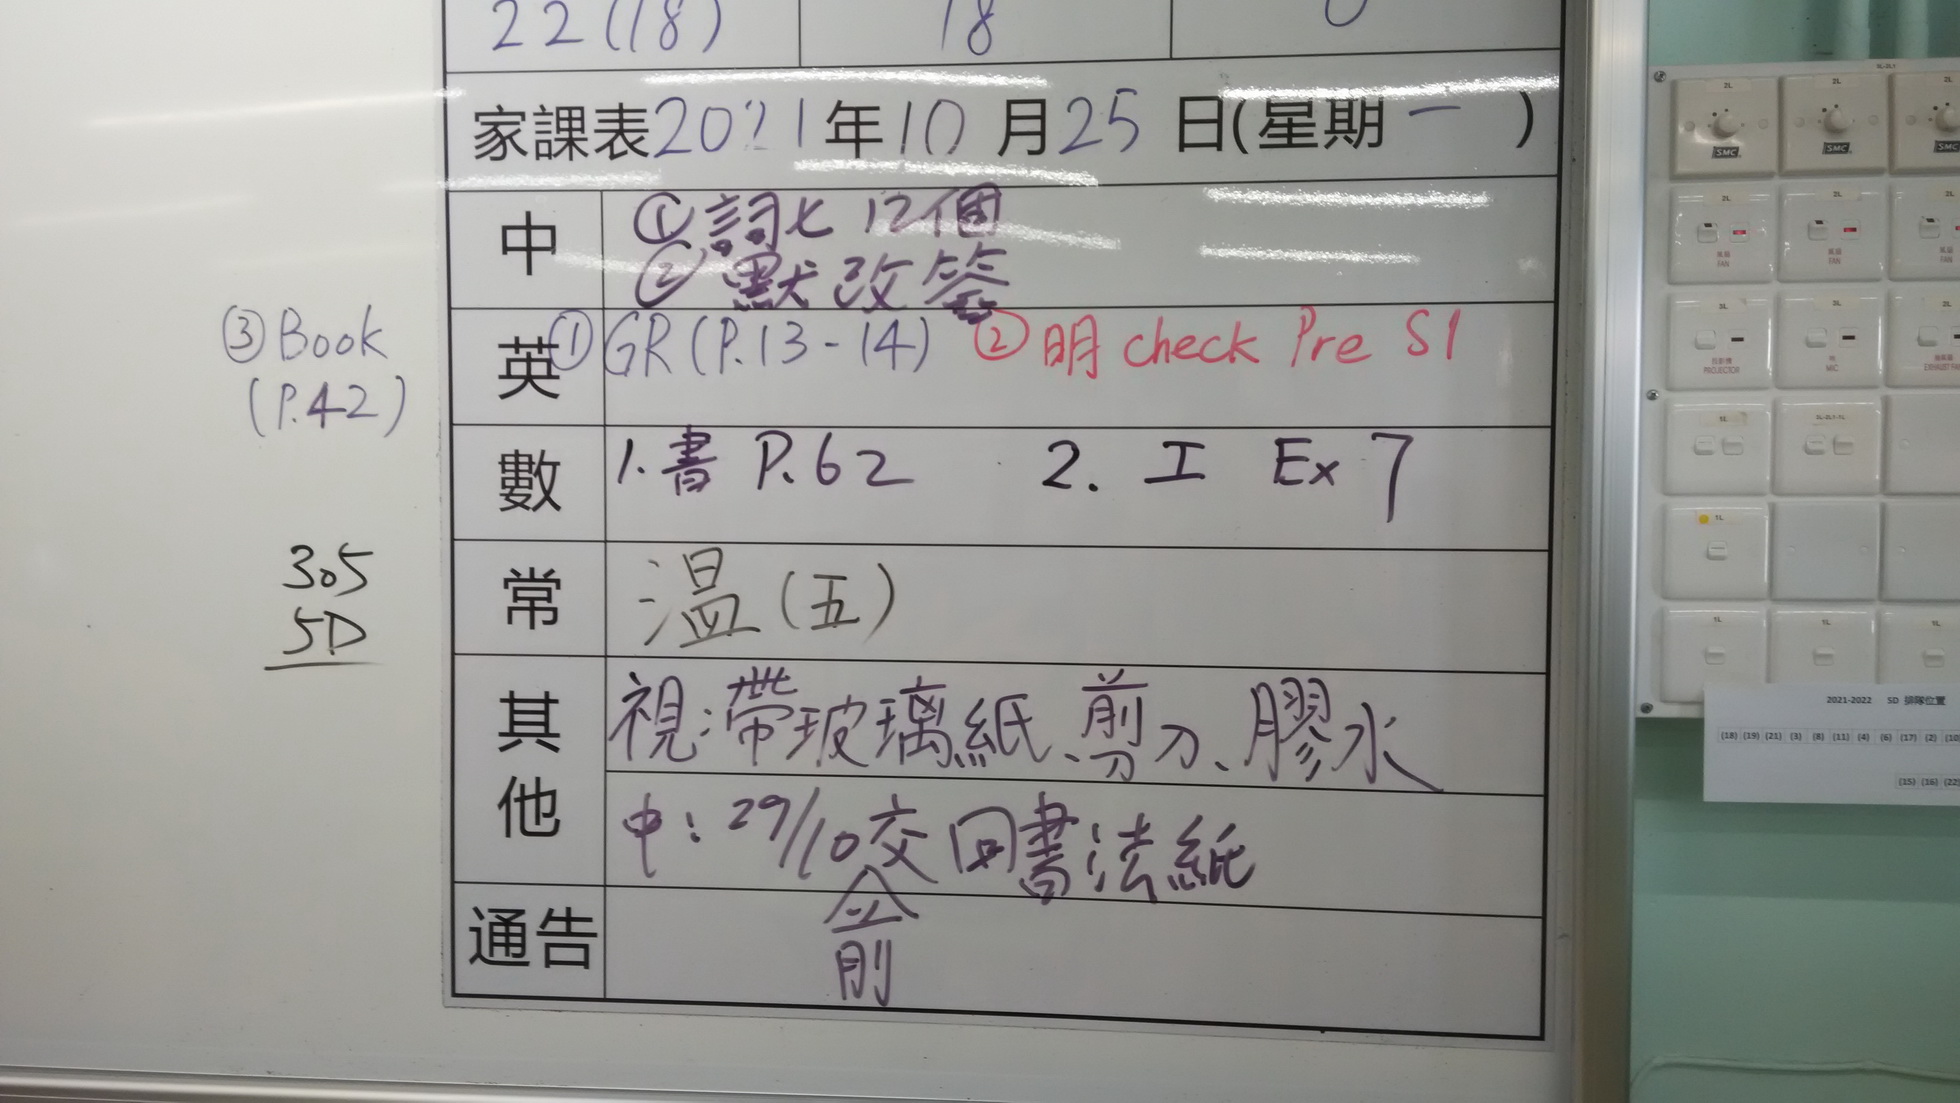 22(18) 18 0
家課表2021年10月25日(星期一)
中
①詞七 12個
②默改簽
英
①GR(P.13-14) ②明 check Pre S1
③Book
(P.42)
數
1.書 P.62 2. 工 Ex 7
常
温(五)
305
5D
其他
視:帶玻璃紙、剪刀、膠水
中:29/10交回書法紙
前
通告
2L 2L 2L
SMC SMC SMC
2L 2L 2L
風扇 風扇 風扇
FAN FAN FAN
投影機
PROJECTOR MIC EXHAUST FAN
1L
1L
1L 1L 1L
2021-2022 5D 排隊位置
(18) (19) (21) (3) (8) (11) (4) (6) (17) (2) (10
(15) (16) (22